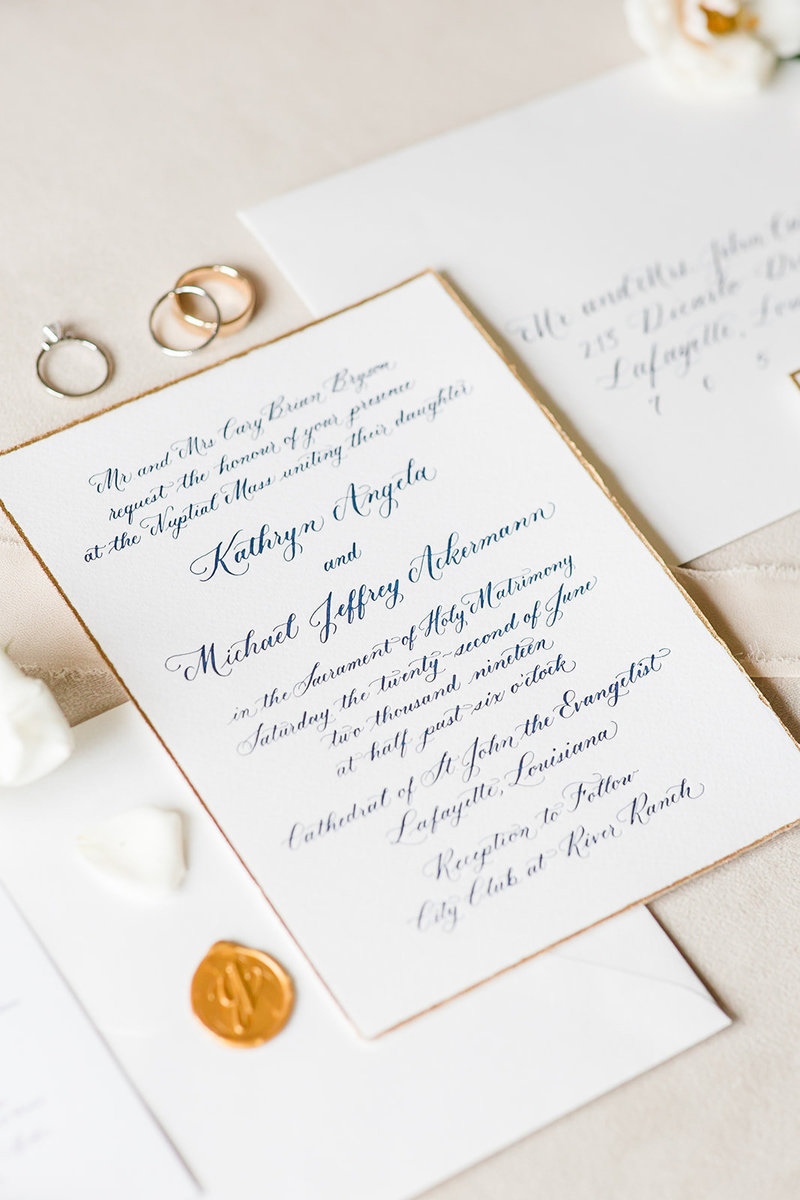 Mr and Mrs Cary Brian Bryson
request the honour of your presence
at the Nuptial Mass uniting their daughter
Kathryn Angela
and
Michael Jeffrey Ackermann
in the Sacrament of Holy Matrimony
Saturday the twenty-second of June
two thousand nineteen
at half past six o'clock
Cathedral of St John the Evangelist
Lafayette, Louisiana
Reception to Follow
City Club at River Ranch
Mr and Mrs. John
215
Lafayette,
7 0 5